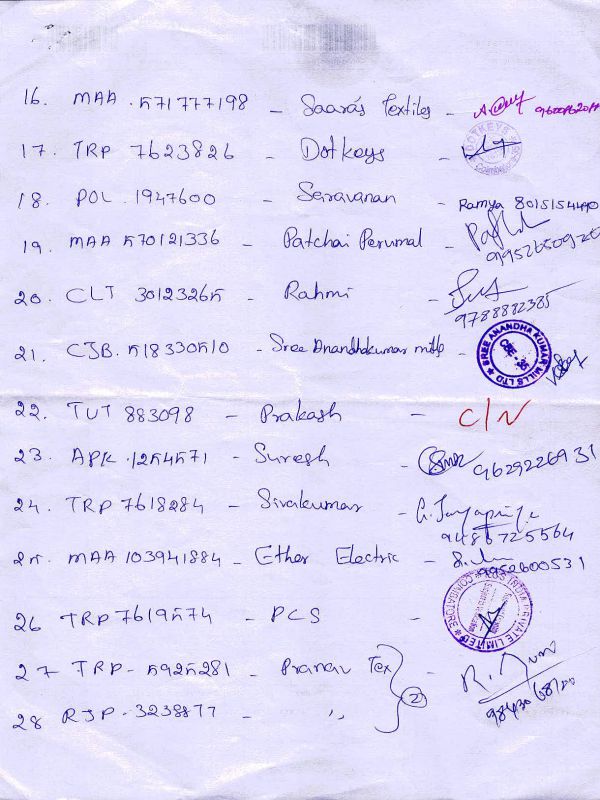 16. MAA . 571777198 - Saaras Textiles -
17. TRP 7623826 - Dotkeys DOTKEYS
18. POL . 1947600 - Saravanan - Ramya 8015154490
19. MAA 570121336 - Patchai Perumal -
20. CLT 30123265 - Rahmi - 9788882385
21. CJB. 518330510 - Sree Anandhakumar mills - SREE ANANDHA KUMAR MILLS LTD
22. TUT 883098 - Prakash - C/N
23. APK . 1254571 - Suresh - 9629226931
24. TRP 7618284 - Sivakumar - 9486725564
25. MAA 103941884 - Ether Electric - 9952600531
26 TRP 7619574 - PCS PRIVATE LIMITED COIMBATORE
27 TRP - 5925281 - Pranav Tex -
28 RJP - 3238877 - " 2